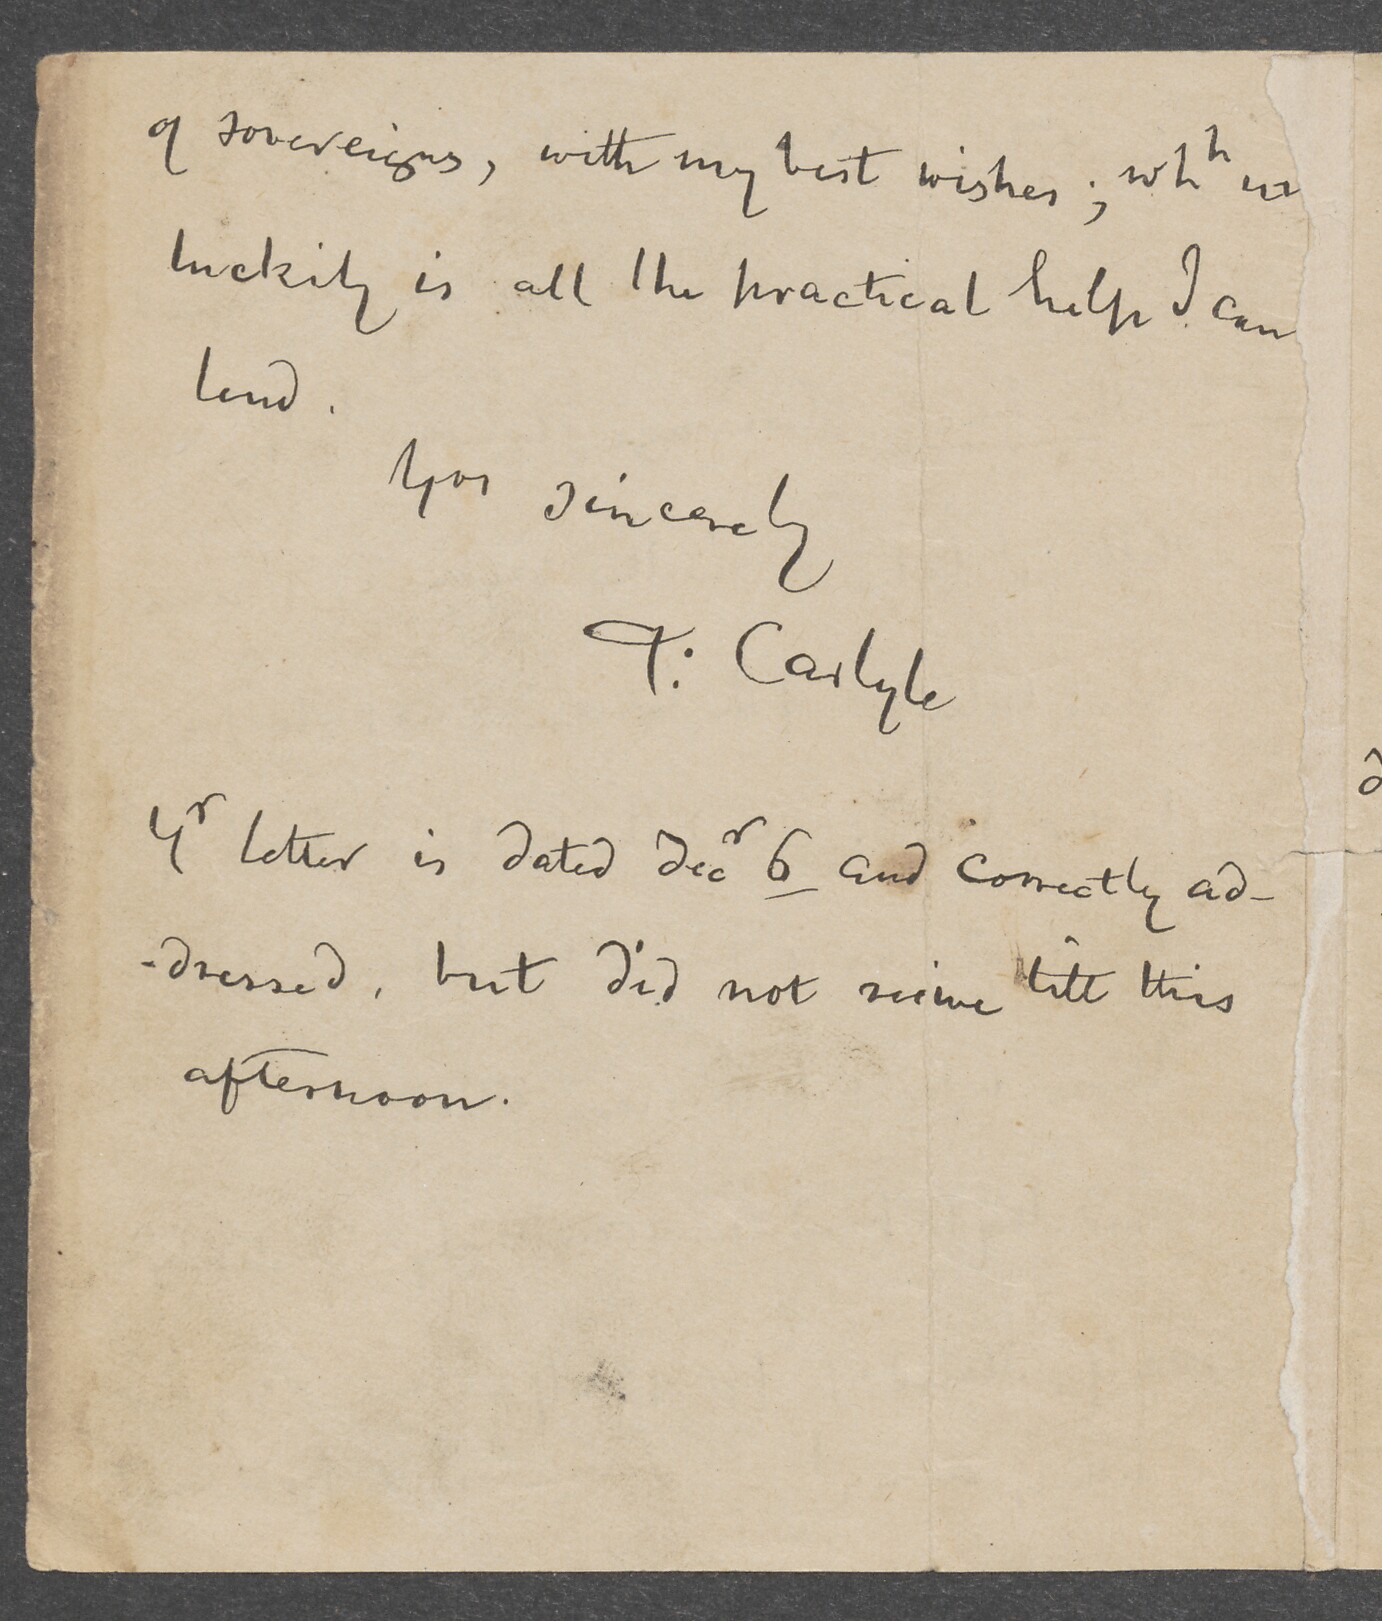 of sovereigns, with my best wishes; whh un
luckily is all the practical help I can
lend.
Yos sincerely
T: Carlyle
Yr letter is dated Decr 6 and correctly ad-
-dressed, but did not till this
afternoon.